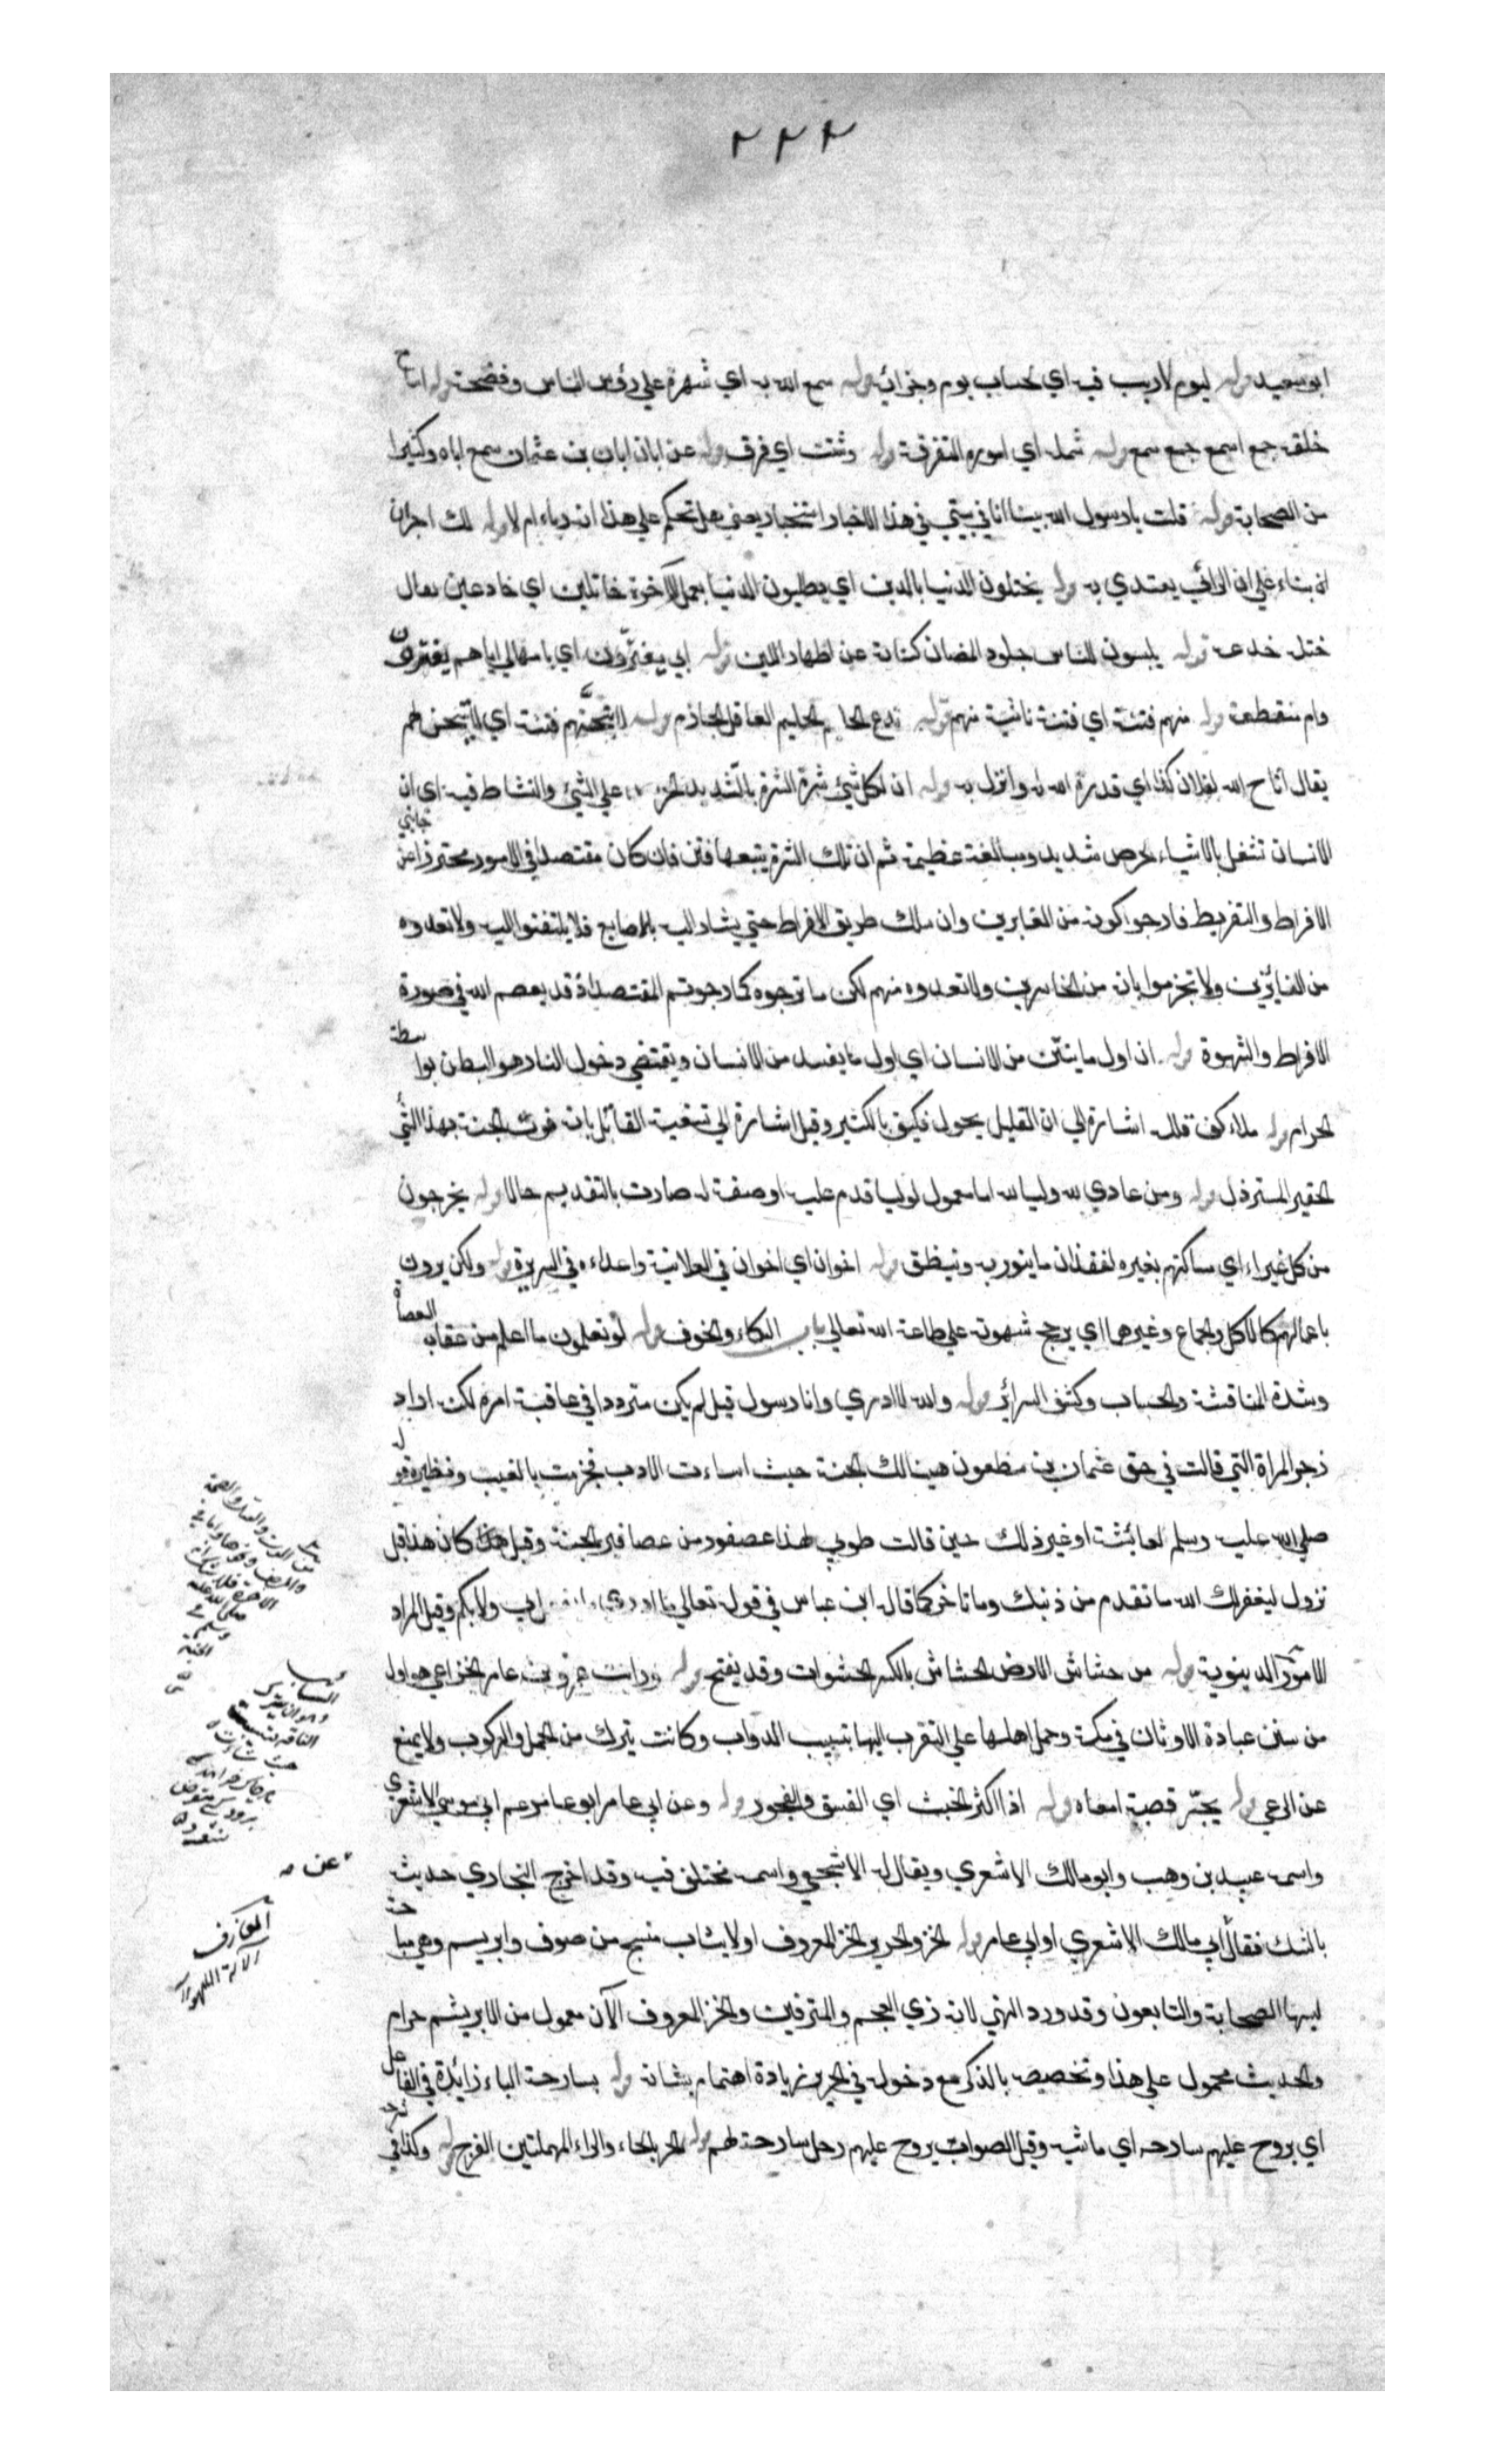 ٢٢٢
ابو سعيد قوله ليوم لا ريب فيه اي لحساب يوم وجزائه قوله سمع الله به اي شهره علي رؤس الناس وفضحه قوله اسامع
خلقه جمع اسمع جمع سمع قوله شمله اي اموره المتفرقة قوله وشتت اي فرق قوله عن ابان ابان بن عثمان سمع اباه وكثيرا
من الصحابة قوله قلت يا رسول الله بينا انا في بيتي في هذا الاخبار استخبار يعني هل تحكم علي هذا انه رياء ام لا قوله لك اجران
انه بناء علي ان الرائي يعتدي به قوله يختلون الدنيا بالدين اي يطلبون الدنيا بعمل الآخرة خاتلين اي خادعين يقال
ختله خدعه قوله يلبسون للناس جلود الضان كناية عن اظهار اللين قوله ابي يغترّون اي بامهالي اياهم يغترون
وام منقطعة قوله منهم فتنة اي فتنة ناشية منهم قوله تدع الحليم الحليم العاقل الحاذم قوله لاتيحنّهم فتنة اي لاتيحن لهم
يقال اتاح الله لفلان كذا اي قدره الله له وانزل به قوله ان لكل شيئ شرة الشرة بالتشديد الحرص علي الشئ والنشاط فيه اي ان
الانسان تشغل بالاشياء بحرص شديد ومبالغة عظيمة ثم ان تلك الشرة يتبعها فترة فان كان مقتصدا في الامور محترزا عن جانبي
الافراط والتفريط فارجوا كونه من الفايزين وان سلك طريق الافراط حتي يشار اليه بالاصابع فلا يلتفتوا اليه ولا تعدوه
من الفايزين ولا تجزموا بانه من الخاسرين ولا تعدوه منهم لكن ما ترجوه كما رجوتم المقتصد اذ قد يعصم الله في صورة
الافراط والشهوة قوله ان اول ما ينتن من الانسان اي اول ما يفسد من الانسان ويقتضي دخول النار هو البطن بواسطة
الحرام قوله ملاء كفه قلله اشارة الي ان القليل يحول فكيف بالكثير وقيل اشارة الي تسفية القائل بانه فوت الجنة بهذا الشئ
الحقير المسترذل قوله ومن عادي لله وليا لله اما معمول لوليا قدم عليه او صفة له صارت بالتقديم حالا قوله يخرجون
من كل غبراء اي مساكنهم بغيره لفقدان ما ينور به وينظف قوله اخوان اي اخوان في العلانية واعداء في السريرة قوله ولكن يرون
باعمالهم كالاكل والجماع وغيرهما اي يرجح شهوته علي طاعة الله تعالي باب البكاء والخوف قوله لو تعلمون ما اعلم من عقاب العصاة
وشدة المناقشة والحساب وكشف السرائر قوله والله لا ادري وانا رسول قيل لم يكن مترددا في عاقبة امره لكنه اراد
زجر المراة التي قالت في حق عثمان بن مظعون هنيالك الجنة حيث اساءت الادب فجزمت بالغيب ونظيره قوله
صلي الله عليه وسلم لعائشة او غير ذلك حين قالت طوبي لهذا عصفور من عصافير الجنة وقيل كان هذا قبل
نزول ليغفر لك الله ما تقدم من ذنبك وما تاخر كما قال ابن عباس في قوله تعالي ما ادري ما يفعل بي ولا بكم وقيل المراد
الامور الدينوية قوله من خشاش الارض الخشاش بالكسر الحشوات وقد يفتح قوله ورايت عمرو بن عامر الخزاعي هو اول
من سنن عبادة الاوثان في مكة وحمل اهلها علي التقرب اليها بتسييب الدواب وكانت يترك من الحمل والركوب ولا يمنع
عن الرعي قوله يجرّ قصبه امعاه قوله اذا اكثر الخبث اي الفسق والفجور قوله وعن ابي عامر ابو عامر عم ابي موسي الاشعري
واسمه عبيد بن وهب وابو مالك الاشعري ويقال له الاشجعي واسمه مختلف فيه وقد اخرج البخاري حديثه
بالشك فقال ابي مالك الاشعري او ابي عامر قوله الخز والحرير الخز المعروف اولا ثياب تنسج من صوف وابريسم وهي مباحة
لبسها الصحابة والتابعون وقد ورد النهي لانه زي العجم والمترفين والخز المعروف الآن معمول من الابريشم حرام
والحديث محمول علي هذا وتخصيصه بالذكر مع دخوله في الحرير زيادة اهتمام بشانه قوله بسارحة الباء زائدة في الفاعل
اي يروح عليهم سارحه اي ماشيه وقيل الصواب يروح عليهم رجل بسارحة لهم قوله الحر بالحاء والراء المهملتين الفرج قوله وكذا في
عن
المعازف
الآلة اللهو